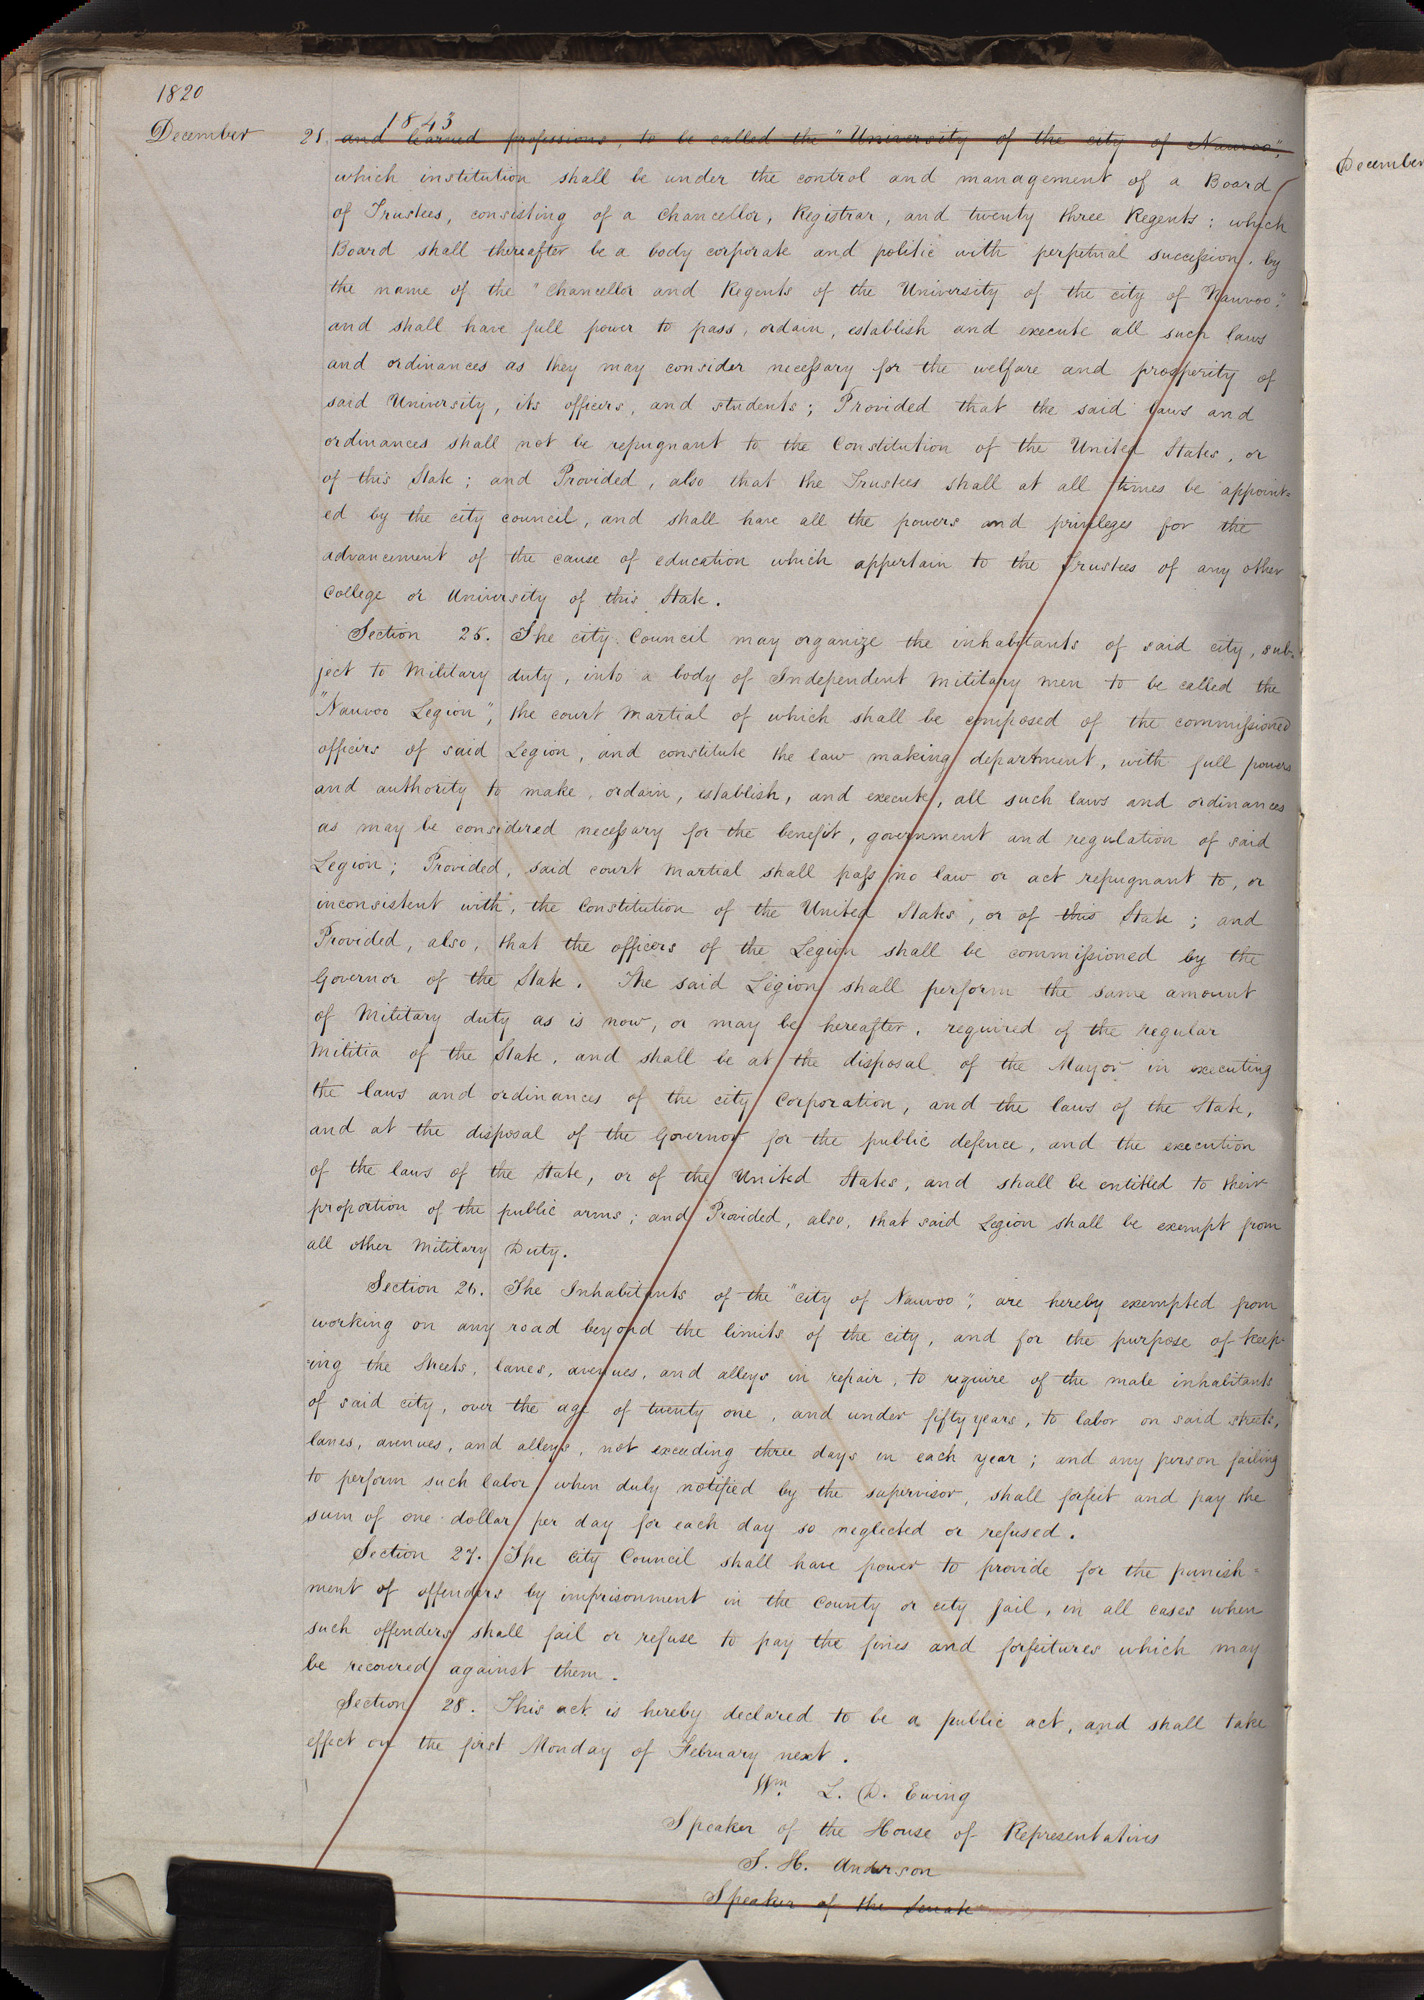 1820
1843
December 21. and learned professions, to be called the "University of the city of Nauvoo",
December
which institution shall be under the control and management of a Board
of Trustees, consisting of a Chancellor, Registrar, and twenty three Regents: which
Board shall thereafter be a body corporate and politic with perpetual succession, by
the name of the "Chancellor and Regents of the University of the city of Nauvoo",
and shall have full power to pass, ordain, establish and execute all such laws
and ordinances as they may consider necessary for the welfare and prosperity of
said University, its officers, and students; Provided that the said laws and
ordinances shall not be repugnant to the Constitution of the United States, or
of this State; and Provided, also that the Trustees shall at all times be appoint-
ed by the city council, and shall have all the powers and privileges for the
advancement of the cause of education which appertain to the Trustees of any other
College or University of this State.
Section 25. The city Council may organize the inhabitants of said city, sub-
ject to Military duty, into a body of Independent Military men to be called the
"Nauvoo Legion", the court Martial of which shall be composed of the commissioned
officers of said Legion, and constitute the law making department, with full powers
and authority to make, ordain, establish, and execute, all such laws and ordinances
as may be considered necessary for the benefit, government and regulation of said
Legion; Provided, said court Martial shall pass no law or act repugnant to, or
inconsistent with, the Constitution of the United States, or of this State; and
Provided, also, that the officers of the Legion shall be commissioned by the
Governor of the State. The said Legion shall perform the same amount
of Military duty as is now, or may be hereafter, required of the regular
Militia of the State, and shall be at the disposal of the Mayor in executing
the laws and ordinances of the city Corporation, and the laws of the State,
and at the disposal of the Governor for the public defence, and the execution
of the laws of the State, or of the United States, and shall be entitled to their
proportion of the public arms; and Provided, also, that said Legion shall be exempt from
all other Military Duty.
Section 26. The Inhabitants of the "city of Nauvoo", are hereby exempted from
working on any road beyond the limits of the city, and for the purpose of keep-
ing the streets, lanes, avenues, and alleys in repair, to require of the male inhabitants
of said city, over the age of twenty one, and under fifty years, to labor on said streets,
lanes, avenues, and alleys, not exceeding three days in each year; and any person failing
to perform such labor when duly notified by the supervisor, shall forfeit and pay the
sum of one dollar per day for each day so neglected or refused.
Section 27. The City Council shall have power to provide for the punish-
ment of offenders by imprisonment in the County or city jail, in all cases when
such offenders shall fail or refuse to pay the fines and forfeitures which may
be recovered against them.
Section 28. This act is hereby declared to be a public act, and shall take
effect on the first Monday of February next.
Wm. L. D. Ewing
Speaker of the House of Representatives
S. H. Anderson
Speaker of the Senate